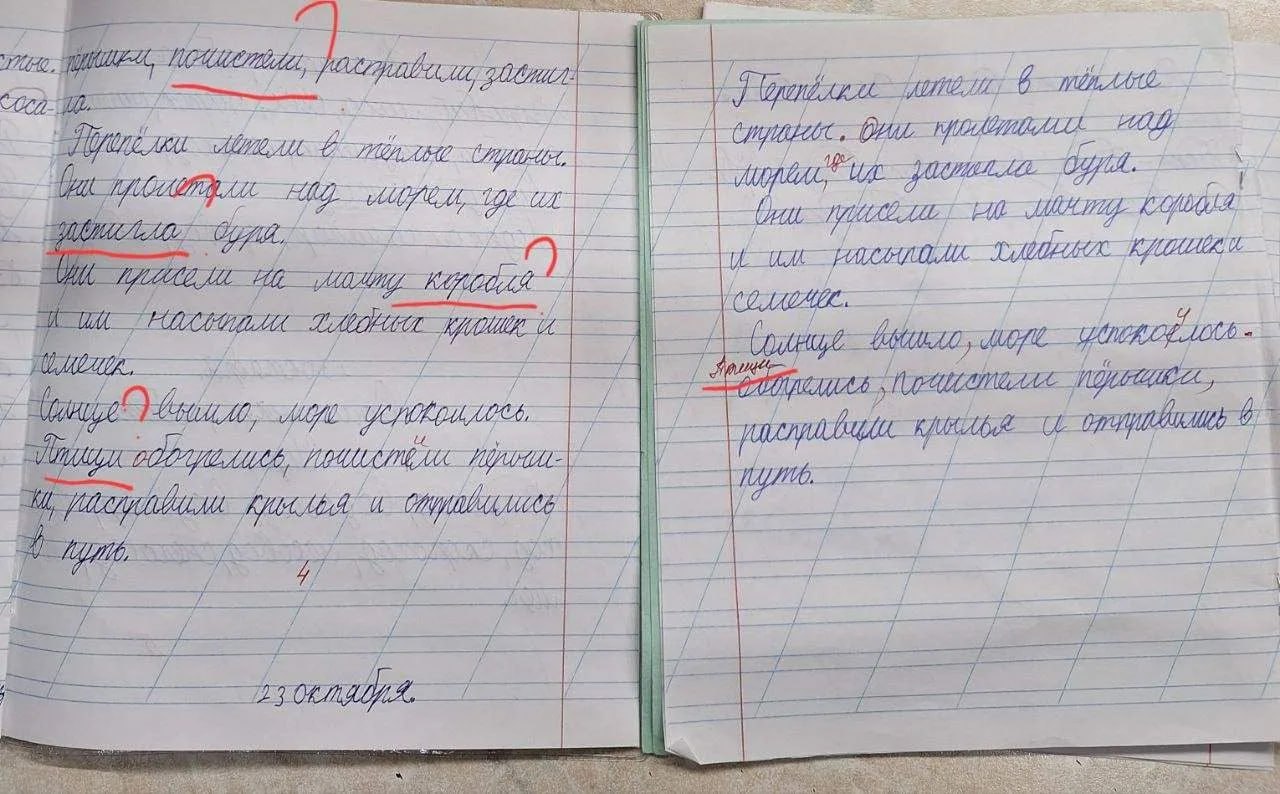 стые. пёрышки, почистели, расправили, застиг-
ла.
Перепёлки летели в тёплые страны.
Они пролетали над морем, где их
застигла буря.
Они присели на мачту коробля
и им насыпали хлебных крошек и
семечек.
Солнце вышло, море успокоилось.
Птици обогрелись, почистели пёрыш-
ки, расправили крылья и отправились
в путь.
4
23 октября.
Перепёлки летели в тёплые
страны. Они пролетали над
морем, где их застегла буря.
Они присели на мачту коробля
и им насыпали хлебных крошек и
семечек.
Солнце вышло, море успокоилось.
Птицы обогрелись, почистели пёрышки,
расправили крылья и отправились в
путь.